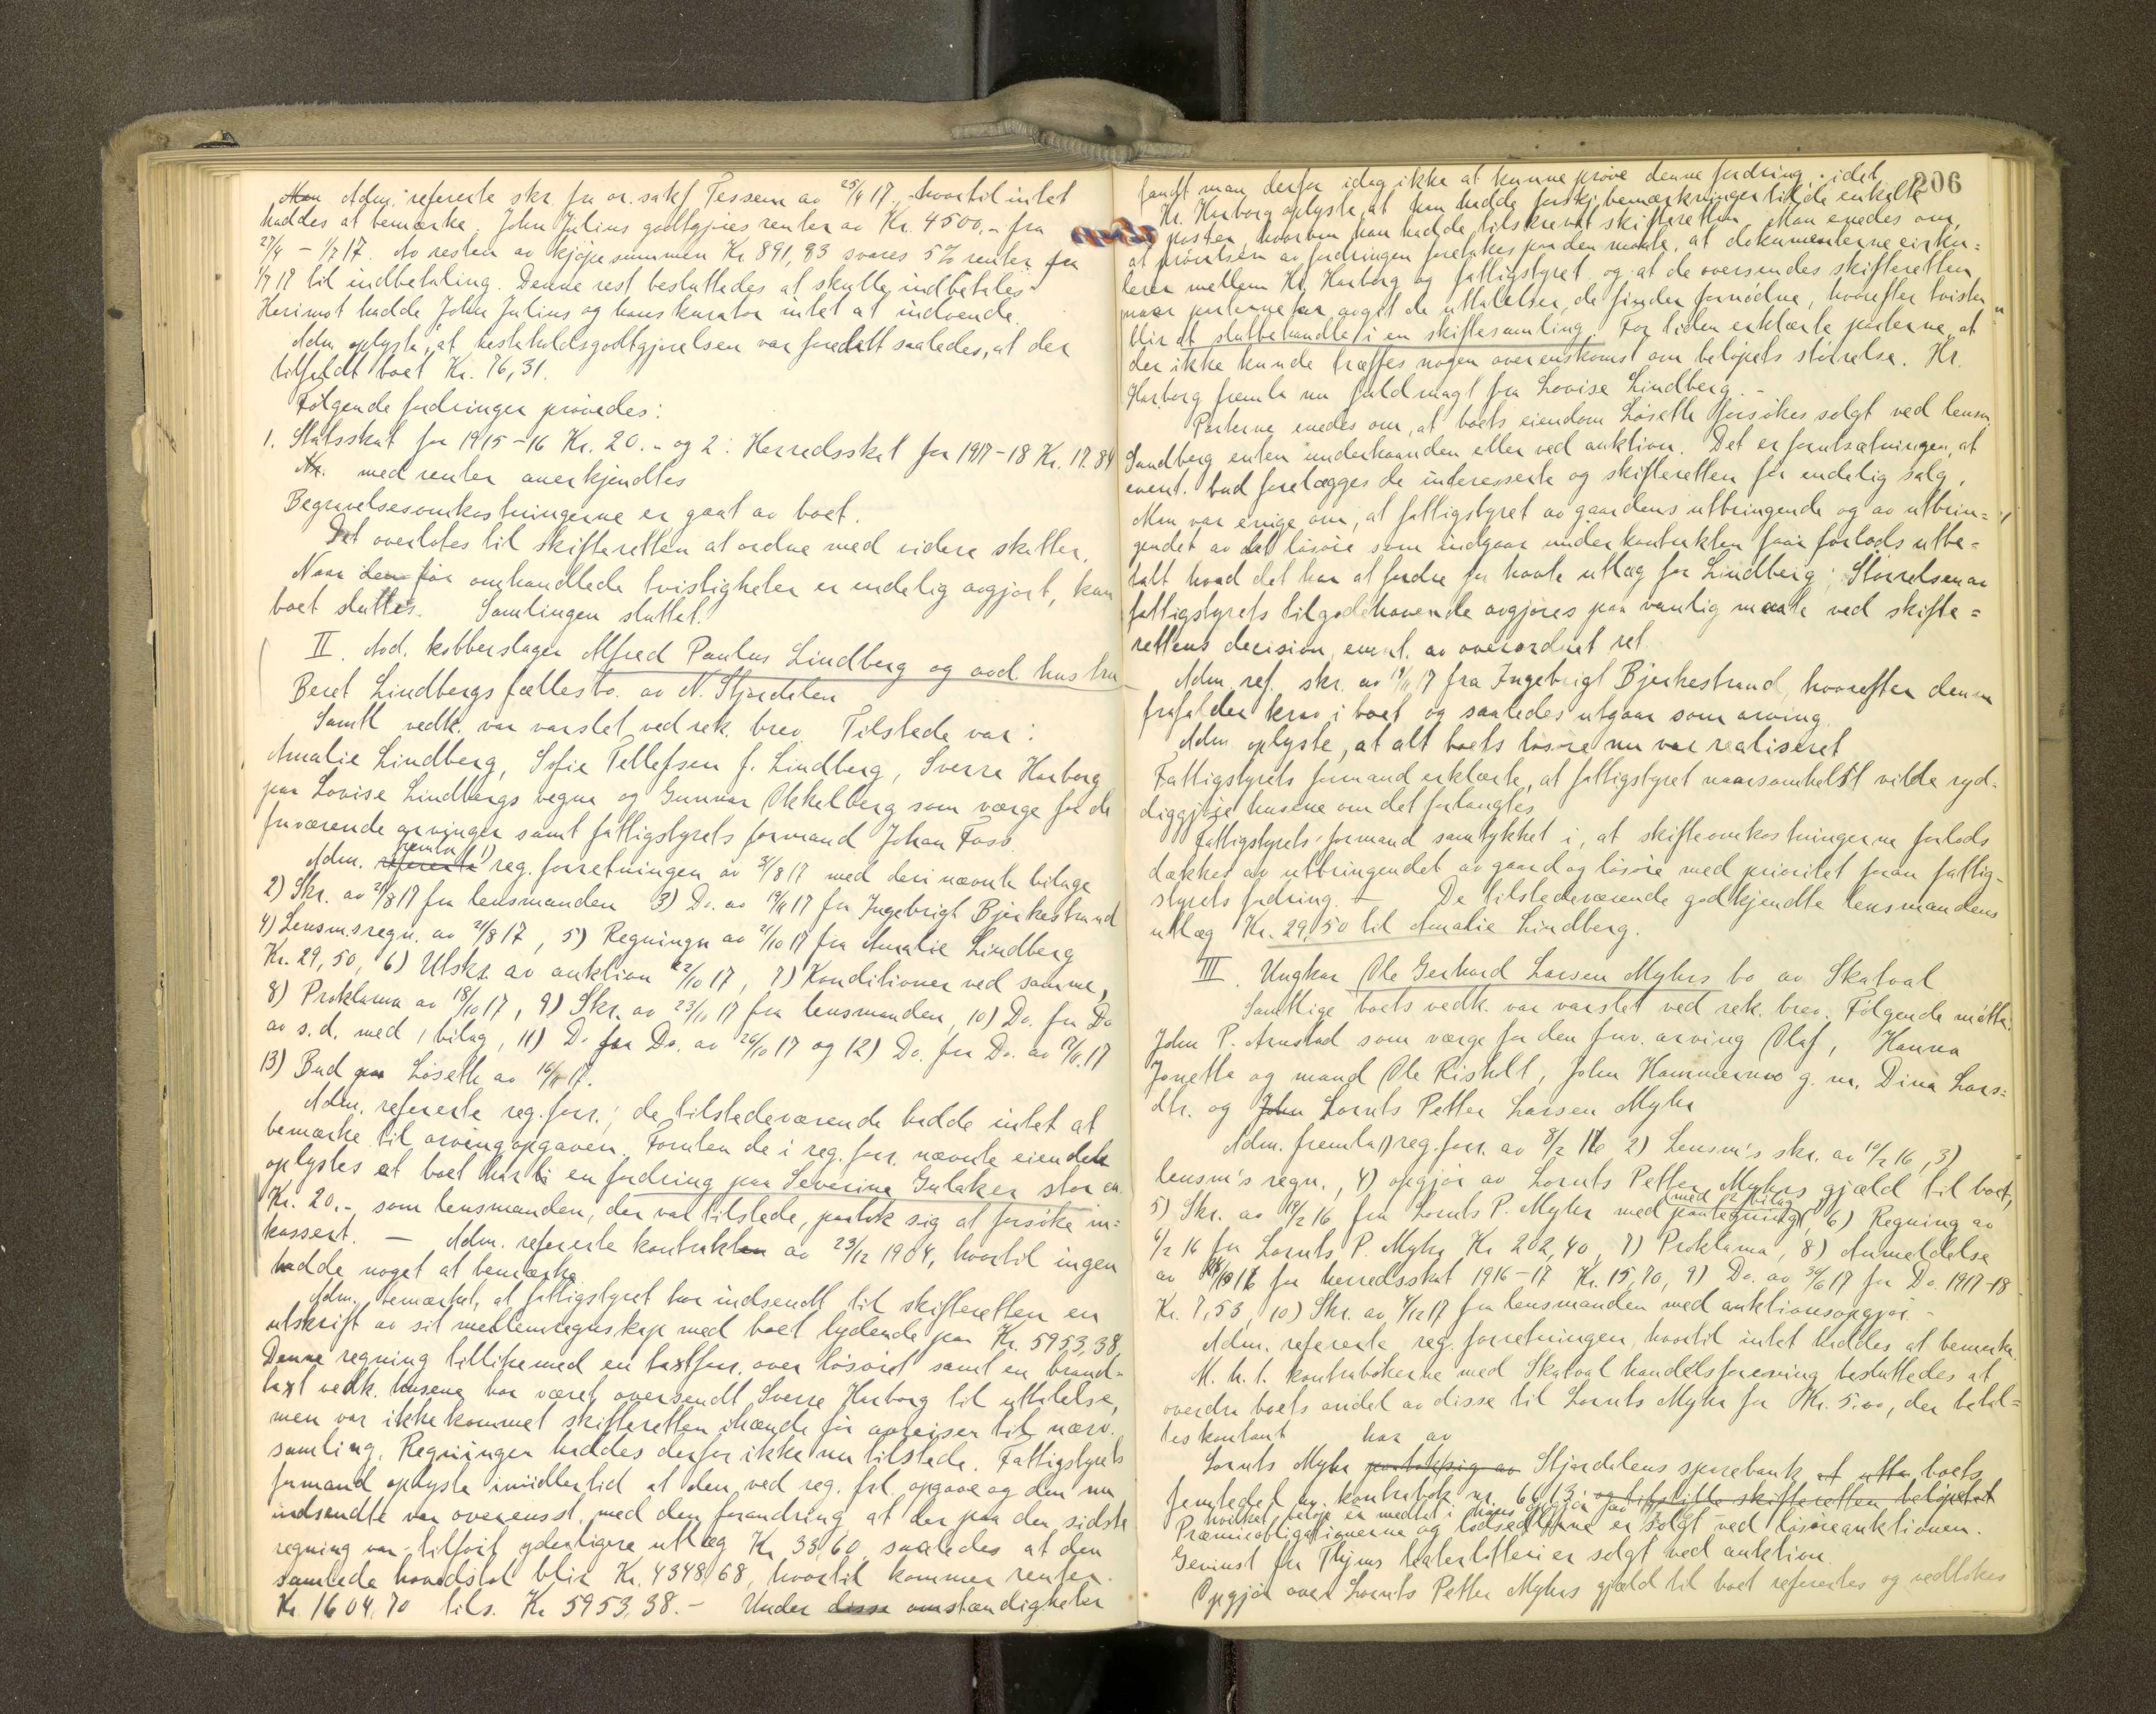 Adm. refererte skr. fra or. sakf. Tessem av 25/4 17, hvortil intet
haddes at bemærke. John Julius godtgjøres renter av Kr. 4500,- fra
27/4 - 1/7 17. Av resten av kjøpesummen Kr 891,83 svares 5% renter fra
1/7 17 til indbetaling. Denne rest besluttedes at skulle indbetales.
Herimot hadde John Julius og hans kurator intet at indvende.
Adm. oplyste, at hesteholdsgodtgjørelsen var fordelt saaledes, at der
tilfaldt boet Kr. 76,31.
Følgende fordringer prøvedes:
1. Statsskat for 1915-16 Kr. 20.- og 2: Herredsskat for 1917-18 Kr. 17.84
med renter anerkjendtes
Begravelsesomkostningerne er gaat av boet.
Det overlotes til skifteretten at ordne med videre skatter.
Naar den før omhandlede tvistigheter er endelig avgjort, kan
boet sluttes. Samlingen sluttet.
II. Avd. kobberslager Alfred Paulus Lindberg og avd. hustru
Beret Lindbergs fællesbo av N. Stjørdalen
Samtl. vedk. var varslet ved rek. brev. Tilstede var:
Amalie Lindberg, Sofie Tellefsen f. Lindberg, Sverre Harborg
paa Lovise Lindbergs vegne og Gunnar Okkelberg som værge for de
fraværende arvinger samt fattigstyrets formand Johan Foss.
Adm. refererte fremla 1) reg. forretningen av 3/8 17 med deri nævnte bilage
2) Skr. av 21/8 17 fra lensmanden 3) Do. av 19/11 17 fra Ingebrigt Bjerkestrand
4) Lensm.s regn. av 21/8 17, 5) Regningn av 21/10 17 fra Amalie Lindberg
Kr. 29,50, 6) Utskr. av auktion 22/10 17, 7) Konditioner ved samme,
8) Proklama av 18/10 17, 9) Skr. av 23/11 17 fra lensmanden, 10) Do. fra Do
av s.d. med 1 bilag, 11) Do. fra Do. av 26/10 17 og 12) Do. fra Do. av 17/11 17
13) Bud paa Løseth av 16/11 17.
Adm. refererte reg. forr.; de tilstedeværende hadde intet at
bemærke til arvingopgaven. Foruten de i reg. forr. nævnte eiendele
oplystes at boet har en fordring paa Severine Gulaker stor ca.
Kr. 20.-, som lensmanden, der var tilstede, paatok sig at forsøke in=
kassert. — Adm. refererte kontrakten av 23/12 1904, hvortil ingen
hadde noget at bemærke
Adm. bemærket, at fattigstyret har indsendt til skifteretten en
utskrift av sit mellemregnskap med boet lydende paa Kr. 5953,38.
Denne regning tillikemed en taxtforr. over løsøret samt en brand-
taxt vedk. husene har været oversendt Sverre Harborg til uttalelse,
men var ikke kommet skifteretten ihænde før avreisen til nærv.
samling. Regningen haddes derfor ikke nu tilstede. Fattigstyrets
formand oplyste imidlertid at den ved reg. forr. opgave og den nu
indsendte var overensst. med den forandring, at der paa den sidste
regning var tilføit yderligere utlæg Kr. 33,60, saaledes at den
samlede hovedstol blir Kr. 4348,68, hvortil kommer renter
Kr. 1604,70 tils. Kr 5953,38.- Under disse omstændigheter
206
fandt man derfor idag ikke at kunne prøve denne fordring, idet
Hr. Harborg oplyste, at han hadde forskj. bemærkninger til de enkelte
poster, hvorom han hadde tilskrevet skifteretten. Man enedes om,
at prøvelsen av fordringen foretakes paa den maate, at dokumenterne cirku=
lerer mellem Hr. Harborg og fattigstyret og at de oversendes skifteretten,
naar parterne har avgit de uttalelser, de finder fornødne, hvorefter tvisten
blir at sluttbehandle i en skiftesamling. For tiden erklærte parterne, at
der ikke kunde træffes nogen overenskomst om beløpets størrelse. Hr.
Harborg fremla nu fuldmagt fra Lovise Lindberg.-
Parterne enedes om, at boets eiendom Løseth forsøkes solgt ved lensm.
Sandberg enten underhaanden eller ved auktion. Det er forutsætningen, at
event. bud forelægges de interesserte og skifteretten før endelig salg.
Man var enige om, at fattigstyret av gaardens utbringende og av utbrin=
gendet av det løsøre som indgaar under kontrakten faar forlods utbe=
talt hvad det har at fordre for havte utlæg for Lindberg; Størrelsen av
fattigstyrets tilgodehavende avgjøres paa vanlig maate ved skifte=
rettens decision, event. av overordnet ret.
Adm. ref. skr. av 19/11 17 fra Ingebrigt Bjerkestrand, hvorefter denne
frafalder krav i boet og saaledes utgaar som arving.
Adm. oplyste, at alt boets løsøre nu var realiseret
Fattigstyrets formand erklærte, at fattigstyret naarsomhelst vilde ryd-
diggjøre husene om det forlangtes
Fattigstyrets formand samtykket i, at skifteomkostningerne forlods
dækkes av utbringendet av gaard og løsøre med prioritet foran fattig-
styrets fordring. — De tilstedeværende godkjendte lensmandens
utlæg Kr. 29,50 til Amalie Lindberg.
III. Ungkar Ole Gerhard Larsen Myhrs bo av Skatval
Samtlige boets vedk. var varslet ved rek. brev. Følgende møtte:
John P. Arnstad som værge for den frav. arving Olaf, Hanna
Jonetta og mand Ole Ristelt, John Hammermo g. m. Dina Lars=
dtr. og John Lornts Petter Larsen Myhr
Adm. fremla 1) reg. forr. av 8/2 16 2) Lensm's skr. av 10/2 16, 3)
lensm's regn., 4) opgjør av Lornts Petter Myhrs gjæld til boet,
5) Skr. av 19/2 16 fra Lornts P. Myhr med paategning, med 1 bilag, 6) Regning av
6/2 16 fra Lornts P. Myhr Kr 202,40, 7) Proklama, 8) Anmeldelse
av 16 for herredsskat 1916-17 Kr. 15,70, 9) Do. av 30/6 17 for Do. 1917-18
Kr. 7,53, 10) Skr. av 4/12 17 fra lensmanden med auktionsopgjør -
Adm. refererte reg. forretningen, hvortil intet haddes at bemerke.
M. h. t. kontrabøkerne med Skatval handelsforening besluttedes at
overdra boets andel av disse til Lornts Myhr for Kr. 5.00, der betal=
tes kontant
Lornts Myhr paatok sig av har av Stjørdalens sparebank at utta boets
femtedel av kontrabok nr. 6613; og tilstille skifteretten beløpet
hvilket beløp er medtat i hans opgjør
Præmieobligationerne og lodsedlerne er solgt ved løsøreauktionen.
Gevinst fra Thjms teaterlotteri er solgt ved auktion.
Opgjør over Lornts Petter Myhrs gjæld til boet refertes og vedtokes